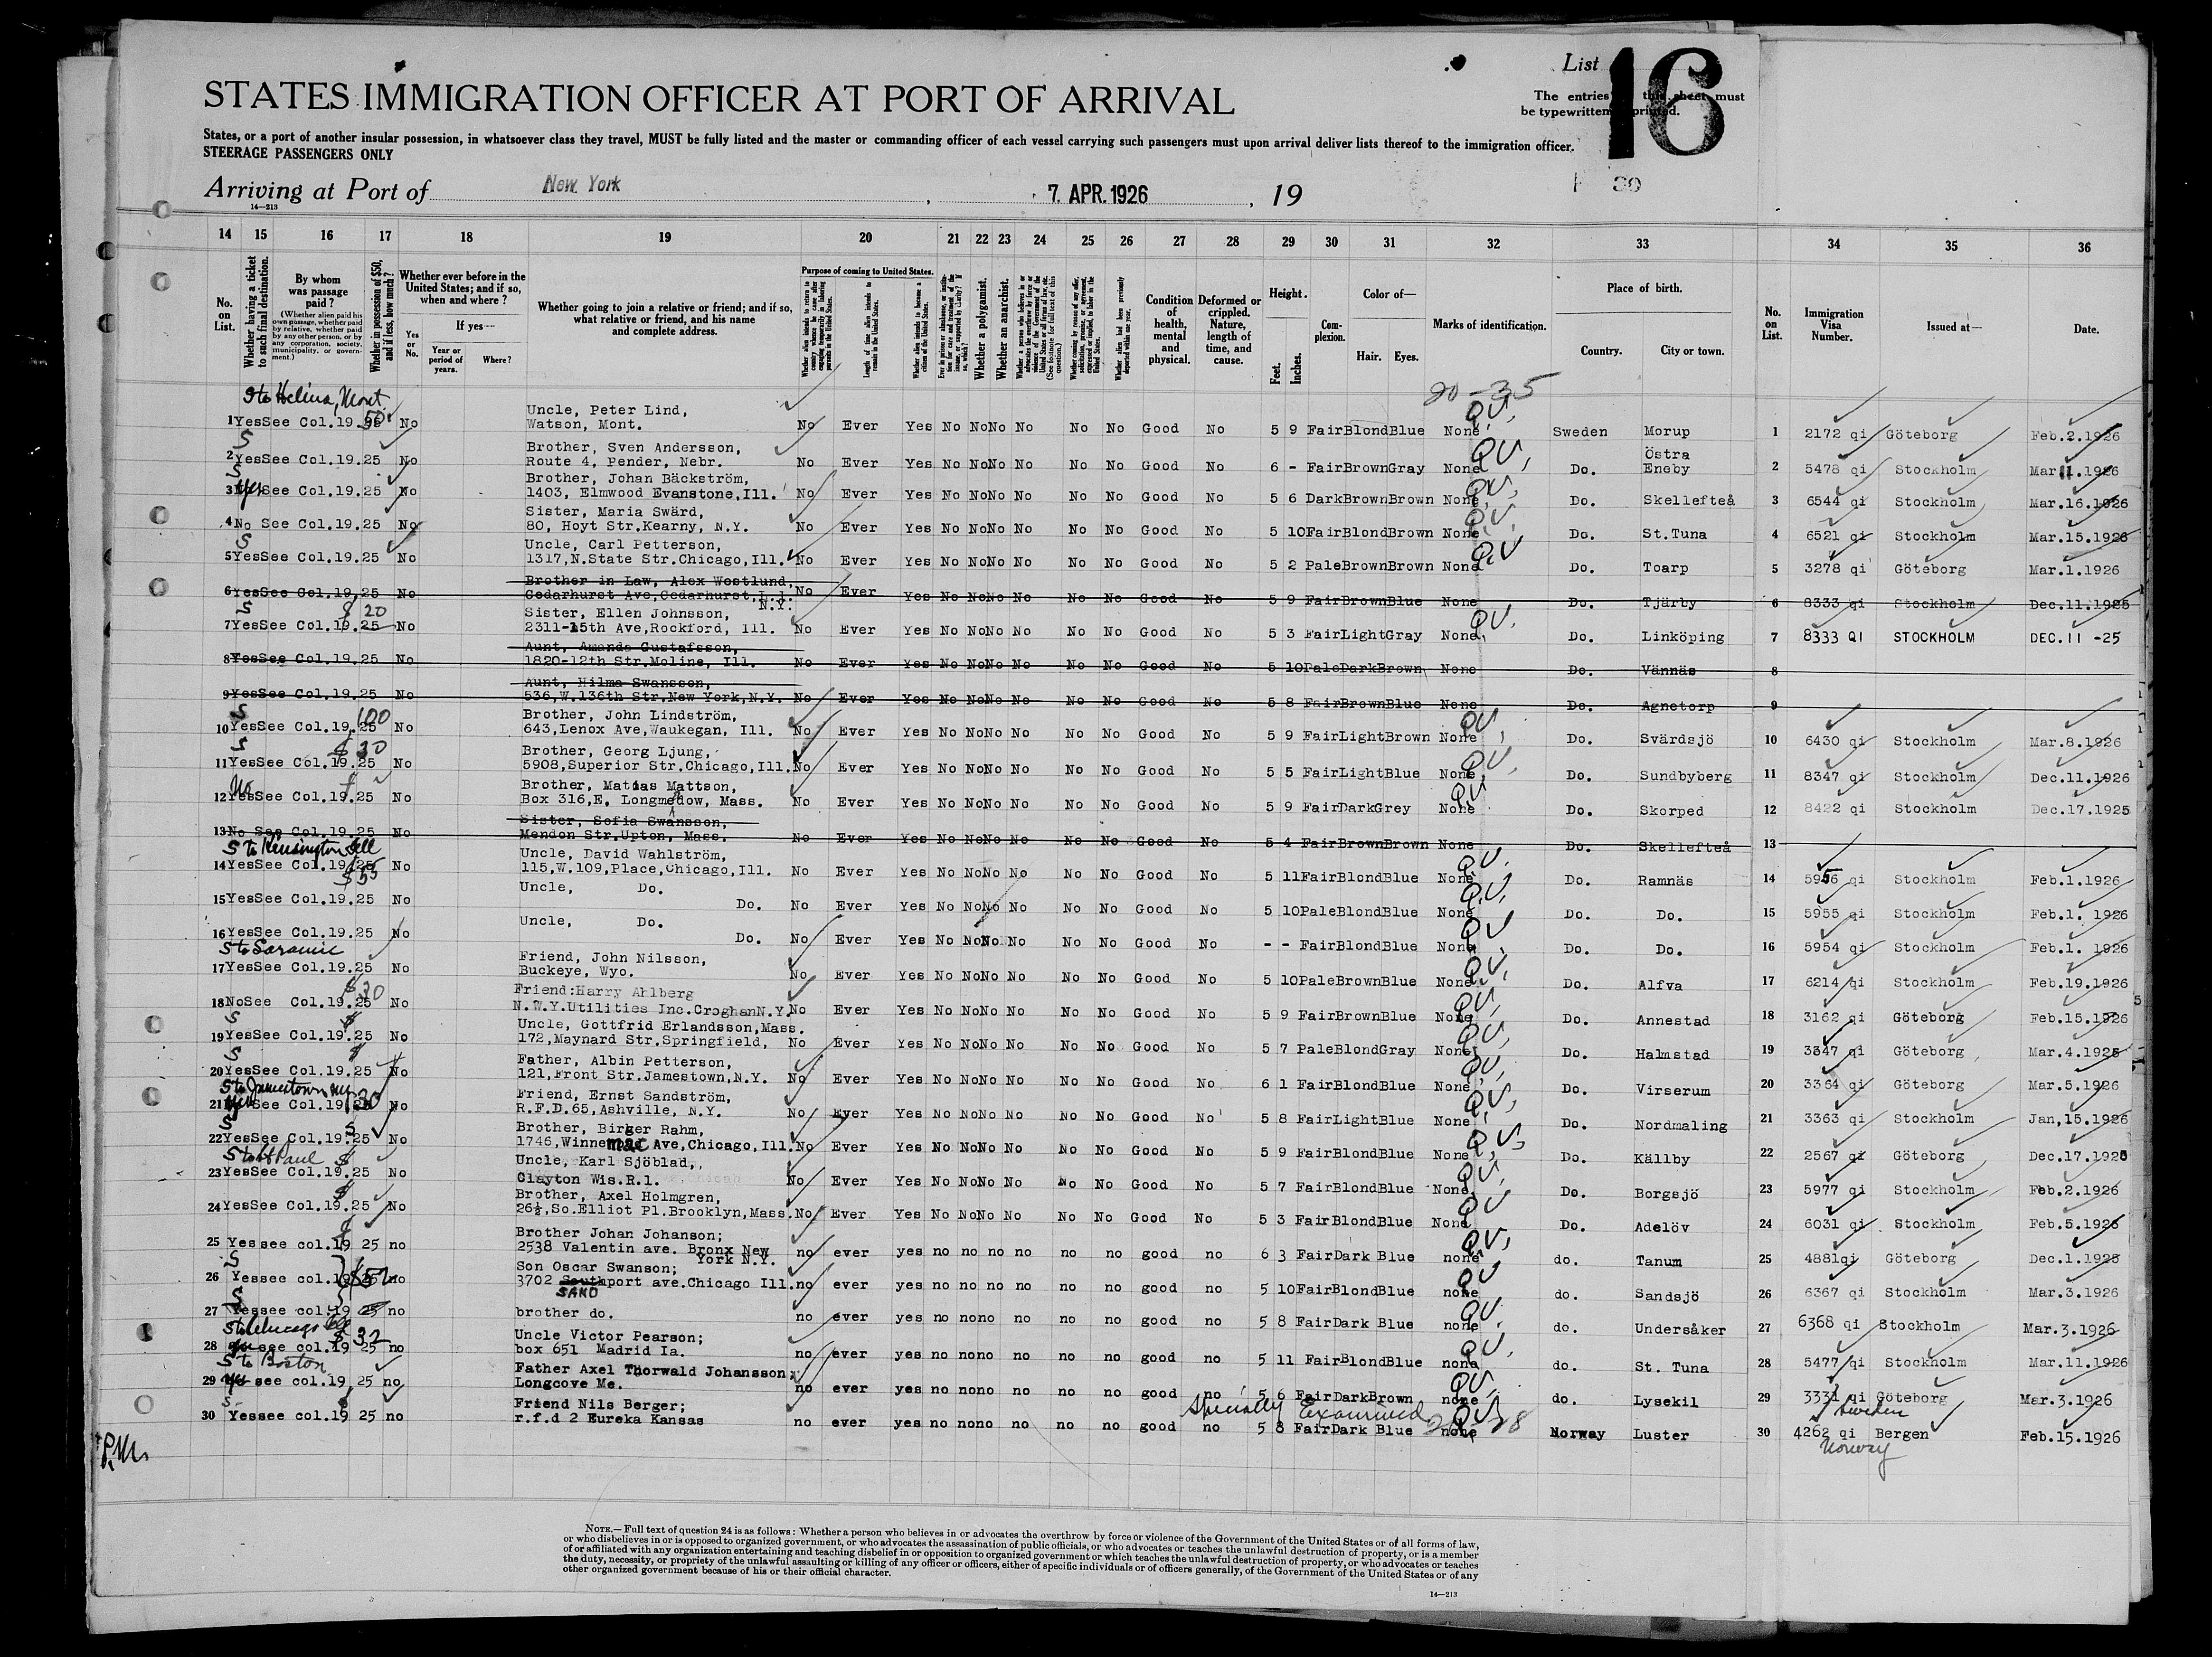 List 16
STATES IMMIGRATION OFFICER AT PORT OF ARRIVAL
The entries this sheet must
be typewritten printed.
States, or a port of another insular possession, in whatsoever class they travel, MUST be fully listed and the master or commanding officer of each vessel carrying such passengers must upon arrival deliver lists thereof to the immigration officer.
STEERAGE PASSENGERS ONLY
Arriving at Port of New York, 7. APR. 1926, 19
30
14—213
14 15 16 17 18 19 20 21 22 23 24 25 26 27 28 29 30 31 32 33 34 35 36
No. on List.
Whether having a ticket to such final destination.
By whom was passage paid?
(Whether alien paid his own passage, whether paid by relative, whether paid by any other person, or by any corporation, society, municipality, or government.)
Whether in possession of $50, and if less, how much?
Whether ever before in the United States; and if so, when and where?
Yes or No.
If yes—
Year or period of years.
Where?
Whether going to join a relative or friend; and if so, what relative or friend, and his name and complete address.
Purpose of coming to United States.
Length of time alien intends to remain in the United States.
Whether alien intends to become a citizen of the United States.
Whether a polygamist.
Whether an anarchist.
Condition of health, mental and physical.
Deformed or crippled. Nature, length of time, and cause.
Height.
Feet. Inches.
Complexion.
Color of—
Hair. Eyes.
Marks of identification.
Place of birth.
Country. City or town.
No. on List.
Immigration Visa Number.
Issued at—
Date.
20-35
S to Helena, Mont
Uncle, Peter Lind,
1 Yes See Col.19. 50 No Watson, Mont. No Ever Yes No No No No No No Good No 5 9 Fair Blond Blue None Sweden Morup 1 2172 qi Göteborg Feb.2.1926
S Brother, Sven Andersson, Östra
2 Yes See Col.19.25 No Route 4, Pender, Nebr. No Ever Yes No No No No No No Good No 6 - Fair Brown Gray None Do. Eneby 2 5478 qi Stockholm Mar 11.1926
S Brother, Johan Bäckström,
3 Yes See Col.19.25 No 1403, Elmwood Evanstone, Ill. No Ever Yes No No No No No No Good No 5 6 Dark Brown Brown None Do. Skellefteå 3 6544 qi Stockholm Mar.16.1926
Sister, Maria Swärd,
4 No See Col.19.25 No 80, Hoyt Str.Kearny, N.Y. No Ever Yes No No No No No No Good No 5 10 Fair Blond Brown None Do. St.Tuna 4 6521 qi Stockholm Mar.15.1926
S Uncle, Carl Petterson,
5 Yes See Col.19.25 No 1317,N.State Str.Chicago,Ill. No Ever Yes No No No No No No Good No 5 2 Pale Brown Brown None Do. Toarp 5 3278 qi Göteborg Mar.1.1926
Brother in Law, Alex Westlund,
6 Yes See Col.19.25 No Cedarhurst Ave,Cedarhurst,L.I. N.Y. No Ever Yes No No No No No No Good No 5 9 Fair Brown Blue None Do. Tjärby 6 8333 qi Stockholm Dec.11.1925
S $ 20 Sister, Ellen Johnsson,
7 Yes See Col.19.25 No 2311-15th Ave,Rockford, Ill. No Ever Yes No No No No No No Good No 5 3 Fair Light Gray None Do. Linköping 7 8333 QI STOCKHOLM DEC. 11 -25
Aunt, Amanda Gustafsson,
8 Yes See Col.19.25 No 1820-12th Str.Moline, Ill. No Ever Yes No No No No No No Good No 5 10 Pale Dark Brown None Do. Vännäs 8
Aunt, Hilma Swansson,
9 Yes See Col.19.25 No 536,W.136th Str.New York,N.Y. No Ever Yes No No No No No No Good No 5 8 Fair Brown Blue None Do. Agnetorp 9
S 100 Brother, John Lindström,
10 Yes See Col.19.25 No 643,Lenox Ave,Waukegan, Ill. No Ever Yes No No No No No No Good No 5 9 Fair Light Brown None Do. Svärdsjö 10 6430 qi Stockholm Mar.8.1926
S $ 30 Brother, Georg Ljung,
11 Yes See Col.19.25 No 5908,Superior Str.Chicago,Ill. No Ever Yes No No No No No No Good No 5 5 Fair Light Blue None Do. Sundbyberg 11 8347 qi Stockholm Dec.11.1926
No Brother, Matias Mattson,
12 Yes See Col.19.25 No Box 316,E. Longmedow, Mass. No Ever Yes No No No No No No Good No 5 9 Fair Dark Grey None Do. Skorped 12 8422 qi Stockholm Dec.17.1925
Sister, Sofia Swansson,
13 No See Col.19.25 No Mendon Str.Upton, Mass. No Ever Yes No No No No No No Good No 5 4 Fair Brown Brown None Do. Skellefteå 13
S to Kensington Ill Uncle, David Wahlström,
14 Yes See Col.19.25 No 115,W.109,Place,Chicago,Ill. No Ever Yes No No No No No No Good No 5 11 Fair Blond Blue None Do. Ramnäs 14 5956 qi Stockholm Feb.1.1926
$55 Uncle, Do.
15 Yes See Col.19.25 No Do. No Ever Yes No No No No No No Good No 5 10 Pale Blond Blue None Do. Do. 15 5955 qi Stockholm Feb.1. 1926
Uncle, Do.
16 Yes See Col.19.25 No Do. No Ever Yes No No No No No No Good No - - Fair Blond Blue None Do. Do. 16 5954 qi Stockholm Feb.1. 1926
S to Laramie Friend, John Nilsson,
17 Yes See Col.19.25 No Buckeye, Wyo. No Ever Yes No No No No No No Good No 5 10 Pale Brown Blue None Do. Alfva 17 6214 qi Stockholm Feb.19.1926
$30 Friend:Harry Ahlberg
18 No See Col.19.25 No N.W.Y.Utilities Inc.Croghan N.Y. No Ever Yes No No No No No No Good No 5 9 Fair Brown Blue None Do. Annestad 18 3162 qi Göteborg Feb.15.1926
S $ Uncle, Gottfrid Erlandsson,Mass.
19 Yes See Col.19.25 No 172,Maynard Str.Springfield, No Ever Yes No No No No No No Good No 5 7 Pale Blond Gray None Do. Halmstad 19 3347 qi Göteborg Mar.4.1926
S $ Father, Albin Petterson,
20 Yes See Col.19.25 No 121,Front Str.Jamestown,N.Y. No Ever Yes No No No No No No Good No 6 1 Fair Blond Blue None Do. Virserum 20 3364 qi Göteborg Mar.5.1926
S to Jamestown NY Friend, Ernst Sandström,
21 Yes See Col.19. 30 No R.F.D.65,Ashville, N.Y. No Ever Yes No No No No No No Good No 5 8 Fair Light Blue None Do. Nordmaling 21 3363 qi Stockholm Jan,15.1926
S $ Brother, Birger Rahm,
22 Yes See Col.19.25 No 1746,Winnemac Ave,Chicago,Ill. No Ever Yes No No No No No No Good No 5 9 Fair Blond Blue None Do. Källby 22 2567 qi Göteborg Dec.17.1925
S to St Paul $ Uncle, Karl Sjöblad,,
23 Yes See Col.19.25 No Clayton Wis.R.1. No Ever Yes No No No No No No Good No 5 7 Fair Blond Blue None Do. Borgsjö 23 5977 qi Stockholm Feb.2.1926
$ Brother, Axel Holmgren,
24 Yes See Col.19.25 No 26½,So.Elliot Pl.Brooklyn,Mass. No Ever Yes No No No No No No Good No 5 3 Fair Blond Blue None Do. Adelöv 24 6031 qi Stockholm Feb.5.1926
$ Brother Johan Johanson;
25 Yes see col.19 25 no 2538 Valentin ave. Bronx New York N.Y. no ever yes no no no no no no good no 6 3 Fair Dark Blue none do. Tanum 25 4881qi Göteborg Dec.1.1925
S Son Oscar Swanson;
26 Yes see col.19 25 no 3702 Southport ave.Chicago Ill. no ever yes no no no no no no good no 5 10 Fair Blond Blue none do. Sandsjö 26 6367 qi Stockholm Mar.3.1926
S
27 Yes see col.19 25 no brother do. no ever yes no no no no no no good no 5 8 Fair Dark Blue none do. Undersåker 27 6368 qi Stockholm Mar.3.1926
S to Chicago Ill $ 32 Uncle Victor Pearson;
28 yes see col.19 25 no box 651 Madrid Ia. no ever yes no no no no no no good no 5 11 Fair Blond Blue none do. St. Tuna 28 5477 qi Stockholm Mar.11.1926
S to Boston Father Axel Thorwald Johansson;
29 yes see col.19 25 no Longcove Me. no ever yes no no no no no no good no 5 6 Fair Dark Brown none do. Lysekil 29 3331 qi Göteborg Mar.3.1926
Sweden
S $ Friend Nils Berger; Specially Examined
30 Yes see col.19 25 no r.f.d 2 Eureka Kansas no ever yes no no no no no no good no 5 8 Fair Dark Blue none Norway Luster 30 4262 qi Bergen Feb.15.1926
Norway
NOTE.—Full text of question 24 is as follows: Whether a person who believes in or advocates the overthrow by force or violence of the Government of the United States or of all forms of law,
or who disbelieves in or is opposed to organized government, or who advocates the assassination of public officials, or who advocates or teaches the unlawful destruction of property, or is a member
of or affiliated with any organization entertaining and teaching disbelief in or opposition to organized government or which teaches the unlawful destruction of property, or who advocates or teaches
the duty, necessity, or propriety of the unlawful assaulting or killing of any officer or officers, either of specific individuals or of officers generally, of the Government of the United States or of any
other organized government because of his or their official character.
14—213